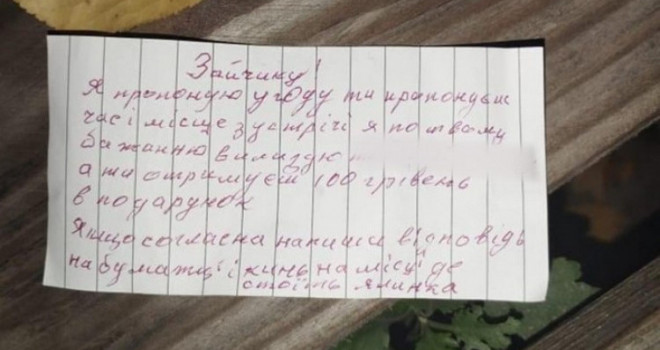 Зайчику!
Я пропоную угоду ти пропонуєш
час і місце зустрічі я по твому
бажанню вилизую
а ти отримуєш 100 грівень
в подарунок
Якщо согласна напиши відповідь
на бумажці і кинь на місці де
стоїть ялинка